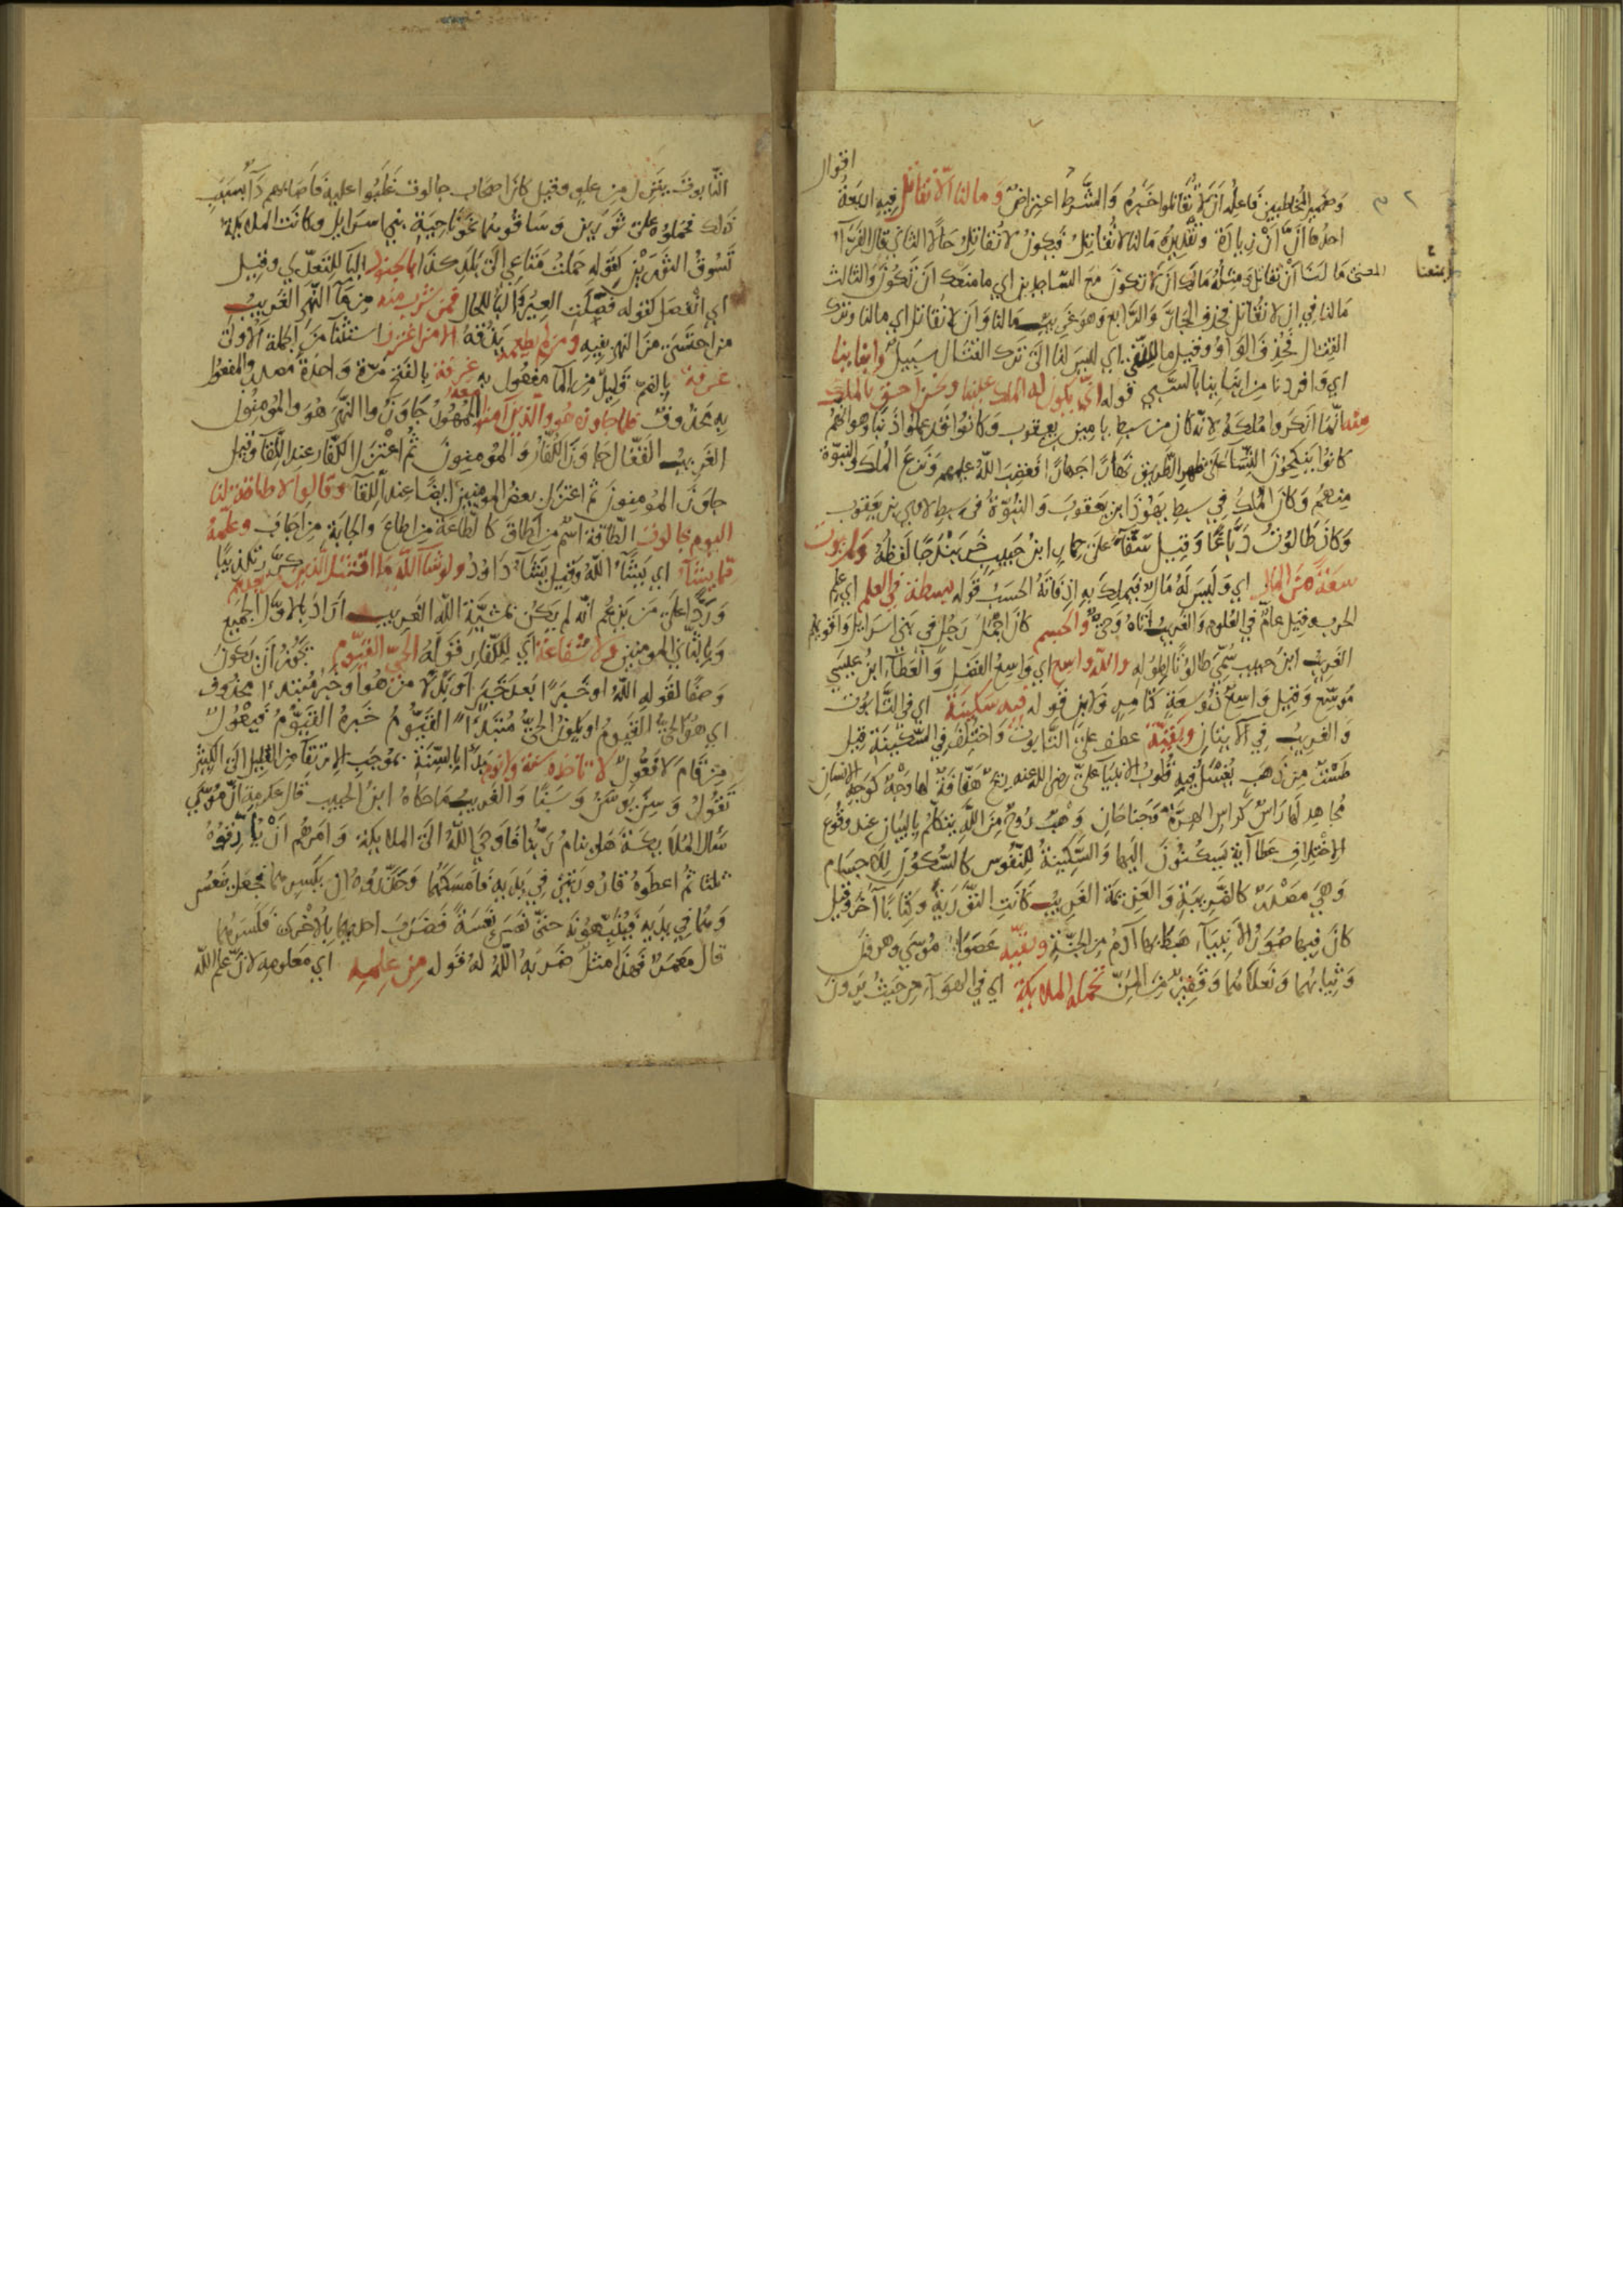 اقوال
وضمير المخاطبين فاعله أن لا تقاتلوا خبره والشرط اعتراض وما لنا ألا نقاتل فيه اربعة
احدها أنّ أنْ زيادة وتقديره مالنا لا نقاتل فيكون لا نقاتل حالا الثاني قال الفراء
المعنى ما لنا أن نقاتل ومثله مالك أن لا تكون مع الساجدين اي ما منعك أن تكون والثالث
مالنا في ان لا نقاتل فحذف الجار والرابع وهو غريب مالنا وان لا نقاتل اي مالنا وترك
القتال فحذف الواو وقيل ما للنفي اي ليس لنا الى ترك القتال سبيل وابنائنا
اي وافردنا من ابنائنا بالسبي قوله انّى يكون له الملك علينا ونحن احق بالملك
منه انما انكروا ملكه لانه كان من سبط يامين بن يعقوب وكانوا قد عملوا ذنبا وهو انهم
كانوا ينكحون النساء على ظهر الطريق نهارا جهارا فغضب الله عليهم ونزع الملك والنبوة
منهم وكان الملك في سبط يهوذا بن يعقوب والنبوة في سبط لاوي بن يعقوب
وكان طالوت دباغا وقيل سقاء على حمار ابن حبيب خربندجا لفظه ولم يؤت
سعة من المال اي وليس له مال فيملك به اذ فاته الحسب قوله بسطة في العلم اي علم
الحرب وقيل عام في العلوم والغريب اتاه وحي والجسم كان اجمل رجل في بني اسرايل واقويهم
الغريب ابن حبيب سمي طالوتا لطوله والله واسع اي واسع الفضل والعطاء ابن عيسى
موسع وقيل واسع ذو سعة كتامر ولابن قوله فيه سكينة اي في التابوت
والغريب في الاتيان وبقية عطف على التابوت واختلف في السكينة قيل
طست من ذهب يغسل فيه قلوب الانبيا علي رضى الله عنه ريح هفافة لها وجه كوجه الانسان
مجاهد لها راس كراس الهرة وجناحان وهب روح من الله يتكلم بالبيان عند وقوع
الاختلاف عطا آية يسكنون اليها والسكينة للنفوس كالسكون للاجسام
وهي مصدر كالضريبة والعزيمة الغريب كانت التورية وكتابا آخر وقيل
كان فيها صور الانبياء هبط بها آدم من الجنة وبقية عصوا موسى وهرون
وثيابهما ونعلاهما وقفيز من المنّ تحمله الملايكة اي في الهواء من حيث يرون
التابوت ينزل من علو وقيل كان اصحاب جالوت غلبوا عليه فاصابهم داء بسبب
ذلك فحملوه على ثورين وساقوهما نحو ناحية بني اسرايل وكانت الملايكة
تسوق الثورين كقوله حملت متاعي الى بلد كذا بالجنود البا للتعدي وقيل
اي انفصل كقوله فصلت العير والبا للحال فمن شرب منه من ماء النهر الغريب
من احتسى من النهر بفيه ومن لم يطعمه يذقه الا من اغترف استثنا من الجملة الاولى
غرفة بالضم قليل من الما مفعول به غرفة بالفتح مرة واحدة مصدر والمفعول
به محذوف فلما جاوزه هو والذين آمنوا معه الجمهور جاوزوا النهر هو والمؤمنون
الغريب القفال جاوز الكفار والمؤمنون ثم اعتزل الكفار عند اللقاء وقيل
جاوز المؤمنون ثم اعتزل بعض المؤمنين ايضا عند اللقاء وقالوا لا طاقة لنا
اليوم بجالوت الطاقة اسم من اطاق كالطاعة من اطاع والجابة من اجاب وعلمه
مما يشاء اي يشاء الله وقيل يشاء داود ولو شاء الله ما اقتتل الذين من بعدهم كرر تاكيدا
وردا على من يزعم انه لم يكن بمشية الله الغريب اراد بالاول الجميع
وبالثاني المومنين ولا شفاعة اي للكفار قوله الحي القيوم يجوز أن يكون
وصفا لقوله الله او خبرا بعد خبر او بدلا من هو او خبر مبتدءا محذوف
اي هو الحي القيوم او يكون الحي مبتداء القيوم خبره القيوم فيعول
من قام لا فعول لا تاخذه سنة ولا نوم بدأ بالسنة بموجب الارتقاء من القليل الى الكثير
تقول وسن يوسن وسنا والغريب ما حكاه ابن الحبيب قال عكرمة ان موسى
سأل الملائكة هل ينام ربنا فاوحى الله الى الملايكة وامرهم ان يؤرقوه
ثلثا ثم اعطوه قارورتين في يديه فامسكهما وحذروه ان يكسرهما فجعل ينعس
وهما في يديه فينتبه حتى نعس نعسة فضرب احديهما بالاخرى فكسرهما
قال معمر فهذا مثل ضربه الله له قوله من علمه اي معلومه لان علم الله